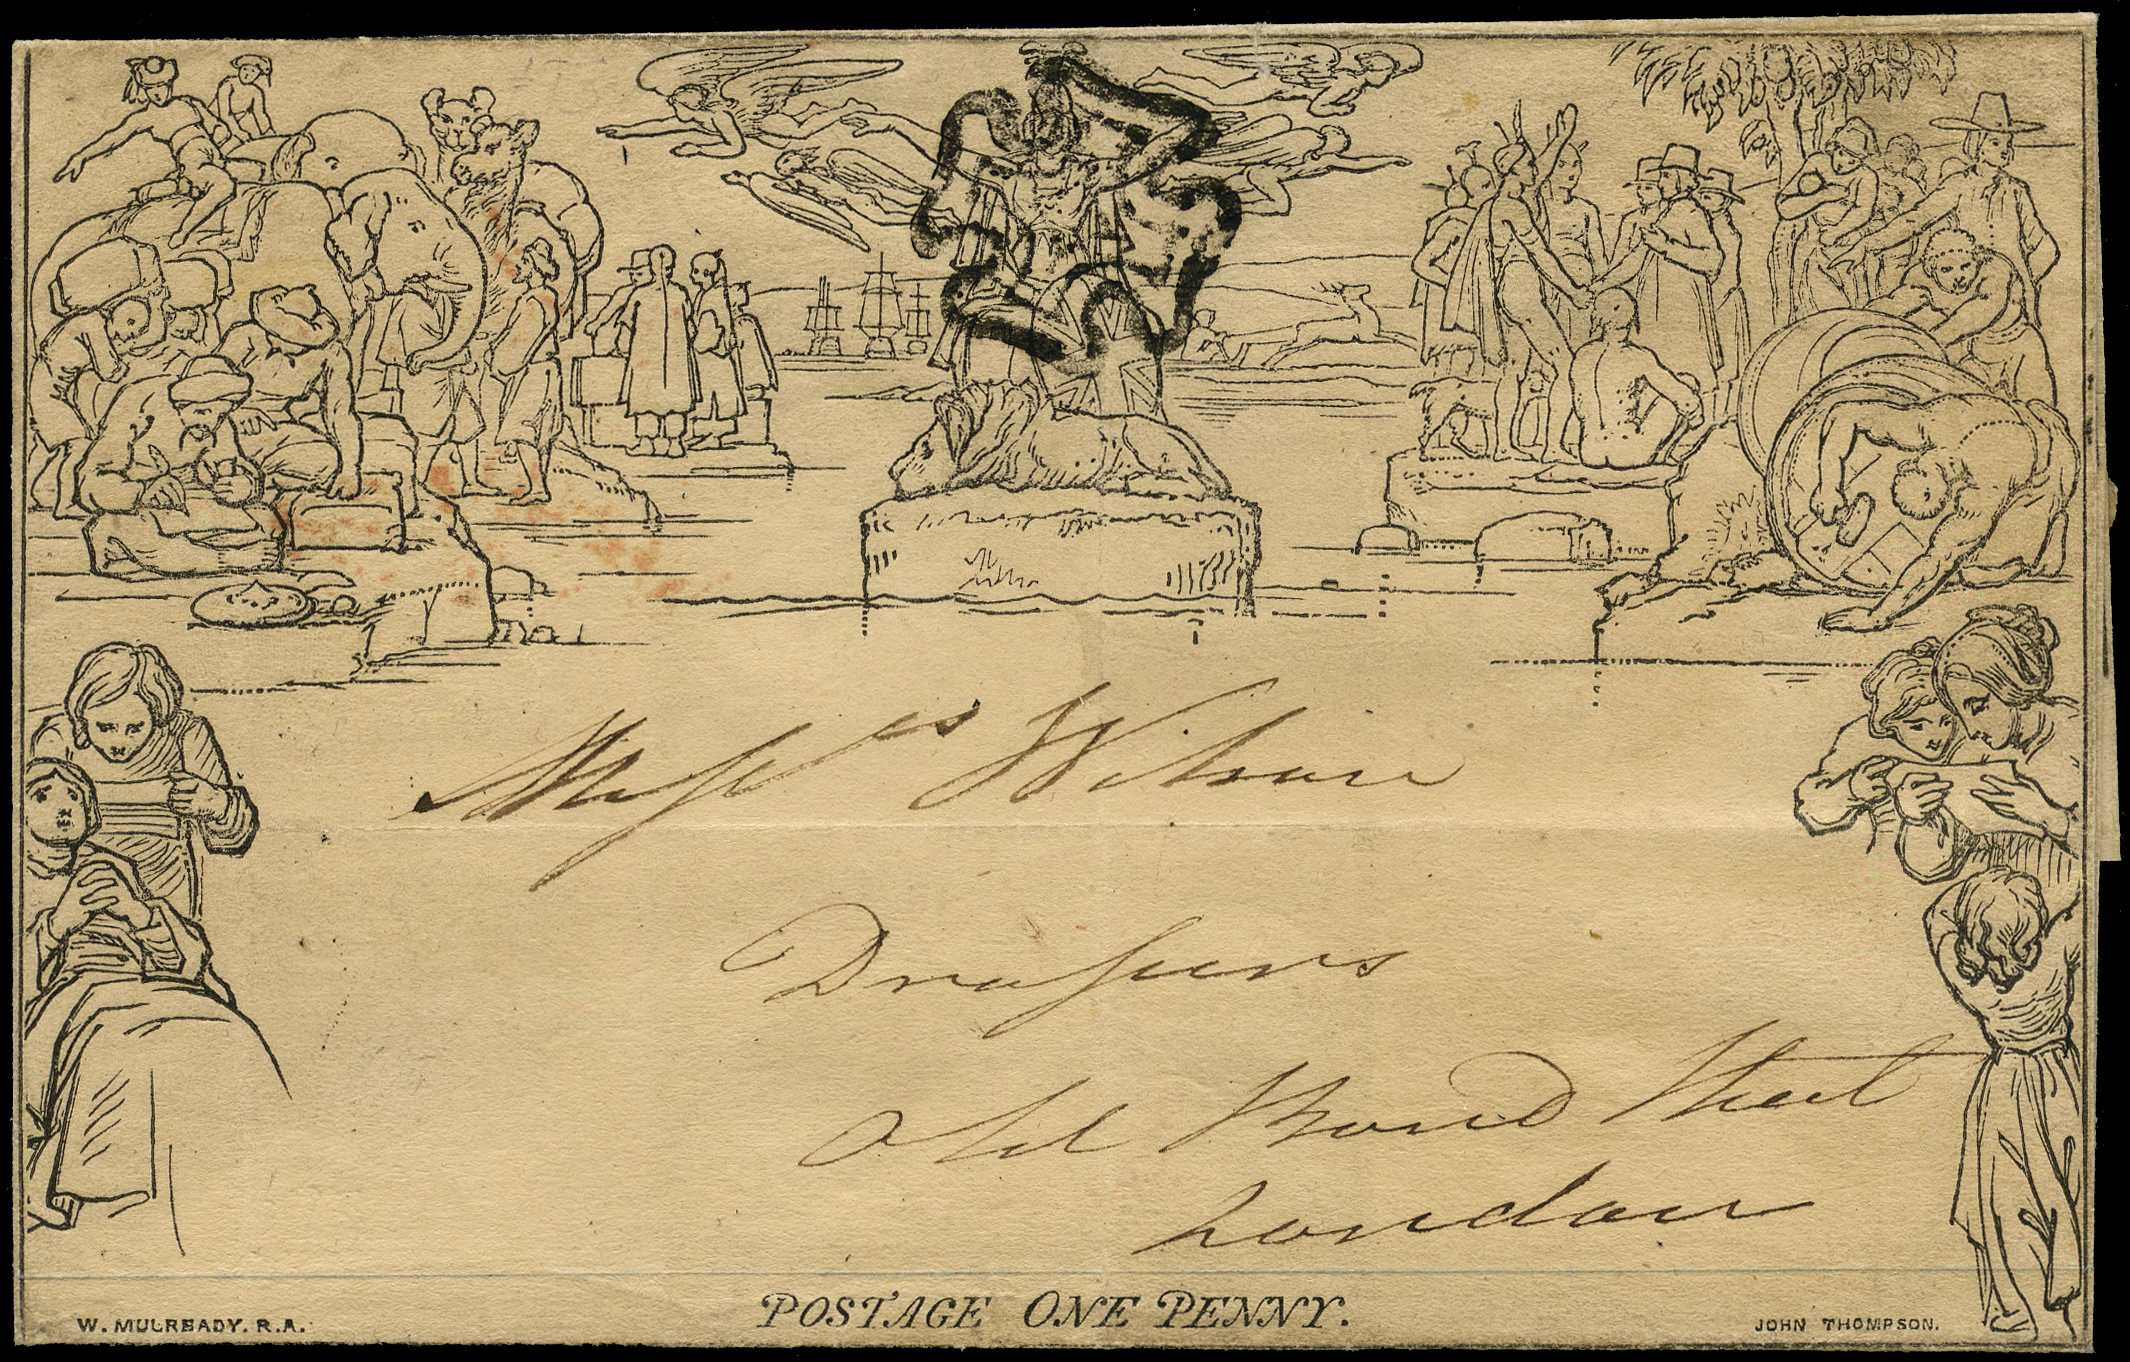 Messrs Wilson
Drapers
Old Bond Street
London
POSTAGE ONE PENNY.
W. MULREADY. R.A.
JOHN THOMPSON.